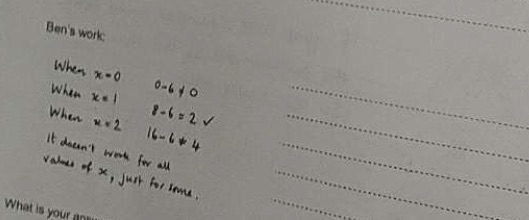 Ben's work:
When x=0 0-6≠0
When x=1 8-6=2 ✓
When x=2 16-6≠4
It doesn't work for all
values of x, just for some.
What is your